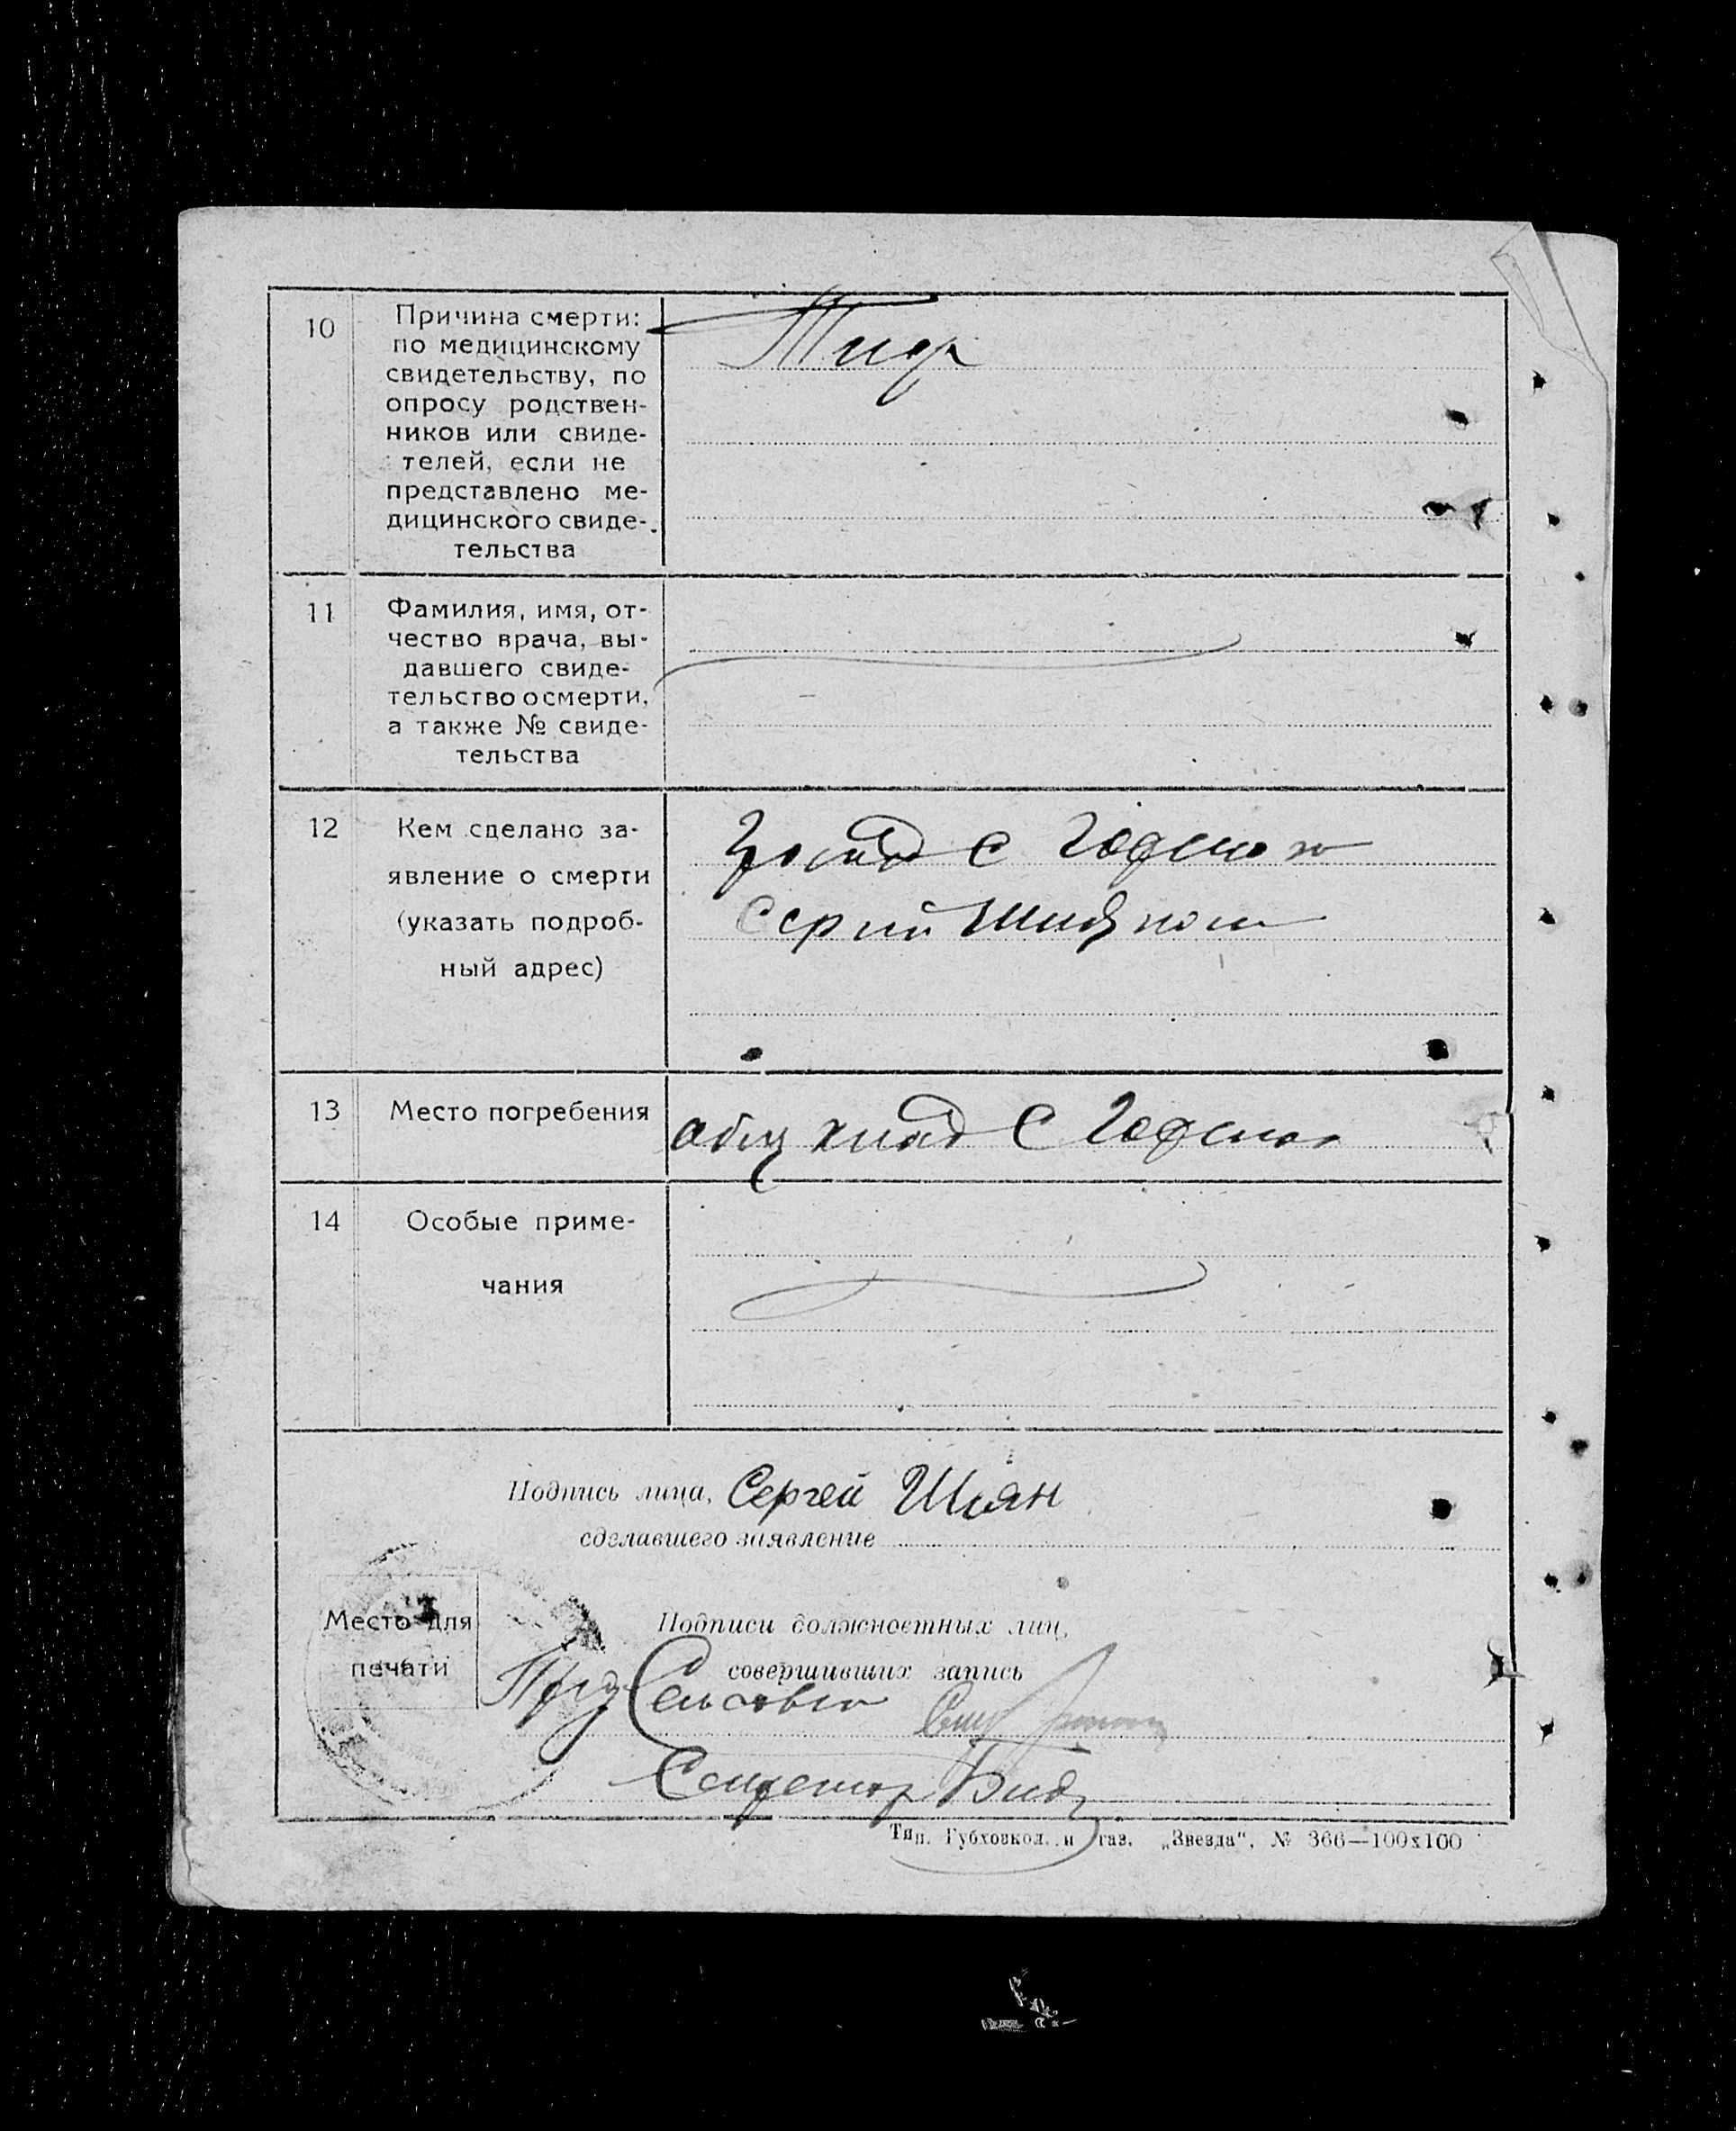 10
Причина смерти:
по медицинскому
свидетельству, по
опросу родствен-
ников или свиде-
телей, если не
представлено ме-
дицинского свиде-
тельства
11
Фамилия, имя, от-
чество врача, вы-
давшего свиде-
тельство о смерти,
а также № свиде-
тельства
12
Кем сделано за-
явление о смерти
(указать подроб-
ный адрес)
с
13
Место погребения
общ клад с
14
Особые приме-
чания
Подпись лица, Сергей Шиян
сделавшего заявление
Место для
печати
Подписи должностных лиц,
совершивших запись
Пред Сельсовета
Секретар
Тип. Губховкол. и газ. „Звезда“, № 366—100х100